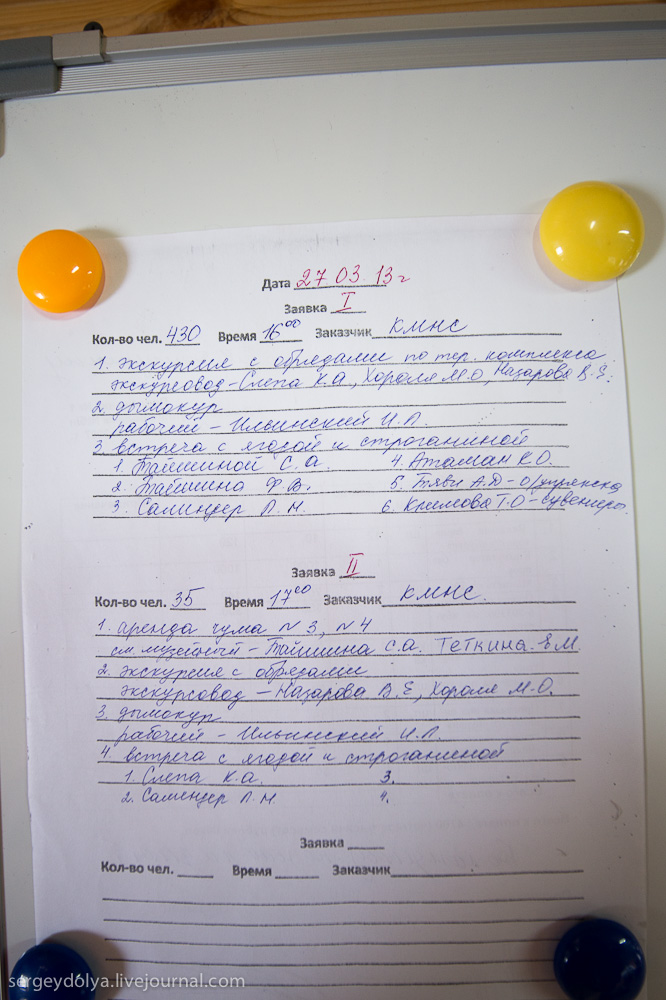 Дата 27 03 13 г
Заявка I
Кол-во чел. 430 Время 16 00 Заказчик КМНС
1. экскурсия с обрядами по тер. комплекса
экскурсовод - Слепа К.А., Хороля М.О, Назарова В.Е.
2. дымокур
рабочий - Ильинский И.Л.
3. встреча с ягодой и строганиной
1. Тайшиной С.А. 4. Атаман К.О.
2. Тайшина Ф.В. 5. Тяви А.Д - о/упряжка
3. Салиндер Л.Н. 6. Климова Т.О - сувениры
Заявка II
Кол-во чел. 35 Время 17 00 Заказчик КМНС.
1. аренда чума N 3, N 4
см. музейный - Тайшина С.А. Теткина Е.М.
2. экскурсия с обрядами
экскурсовод - Назарова В.Е, Хороля М.О.
3. дымокур
рабочий - Ильинский И.Л.
4. встреча с ягодой и строганиной
1. Слепа К.А. 3.
2. Салиндер Л.Н. 4.
Заявка
Кол-во чел. Время Заказчик
sergeydolya.livejournal.com